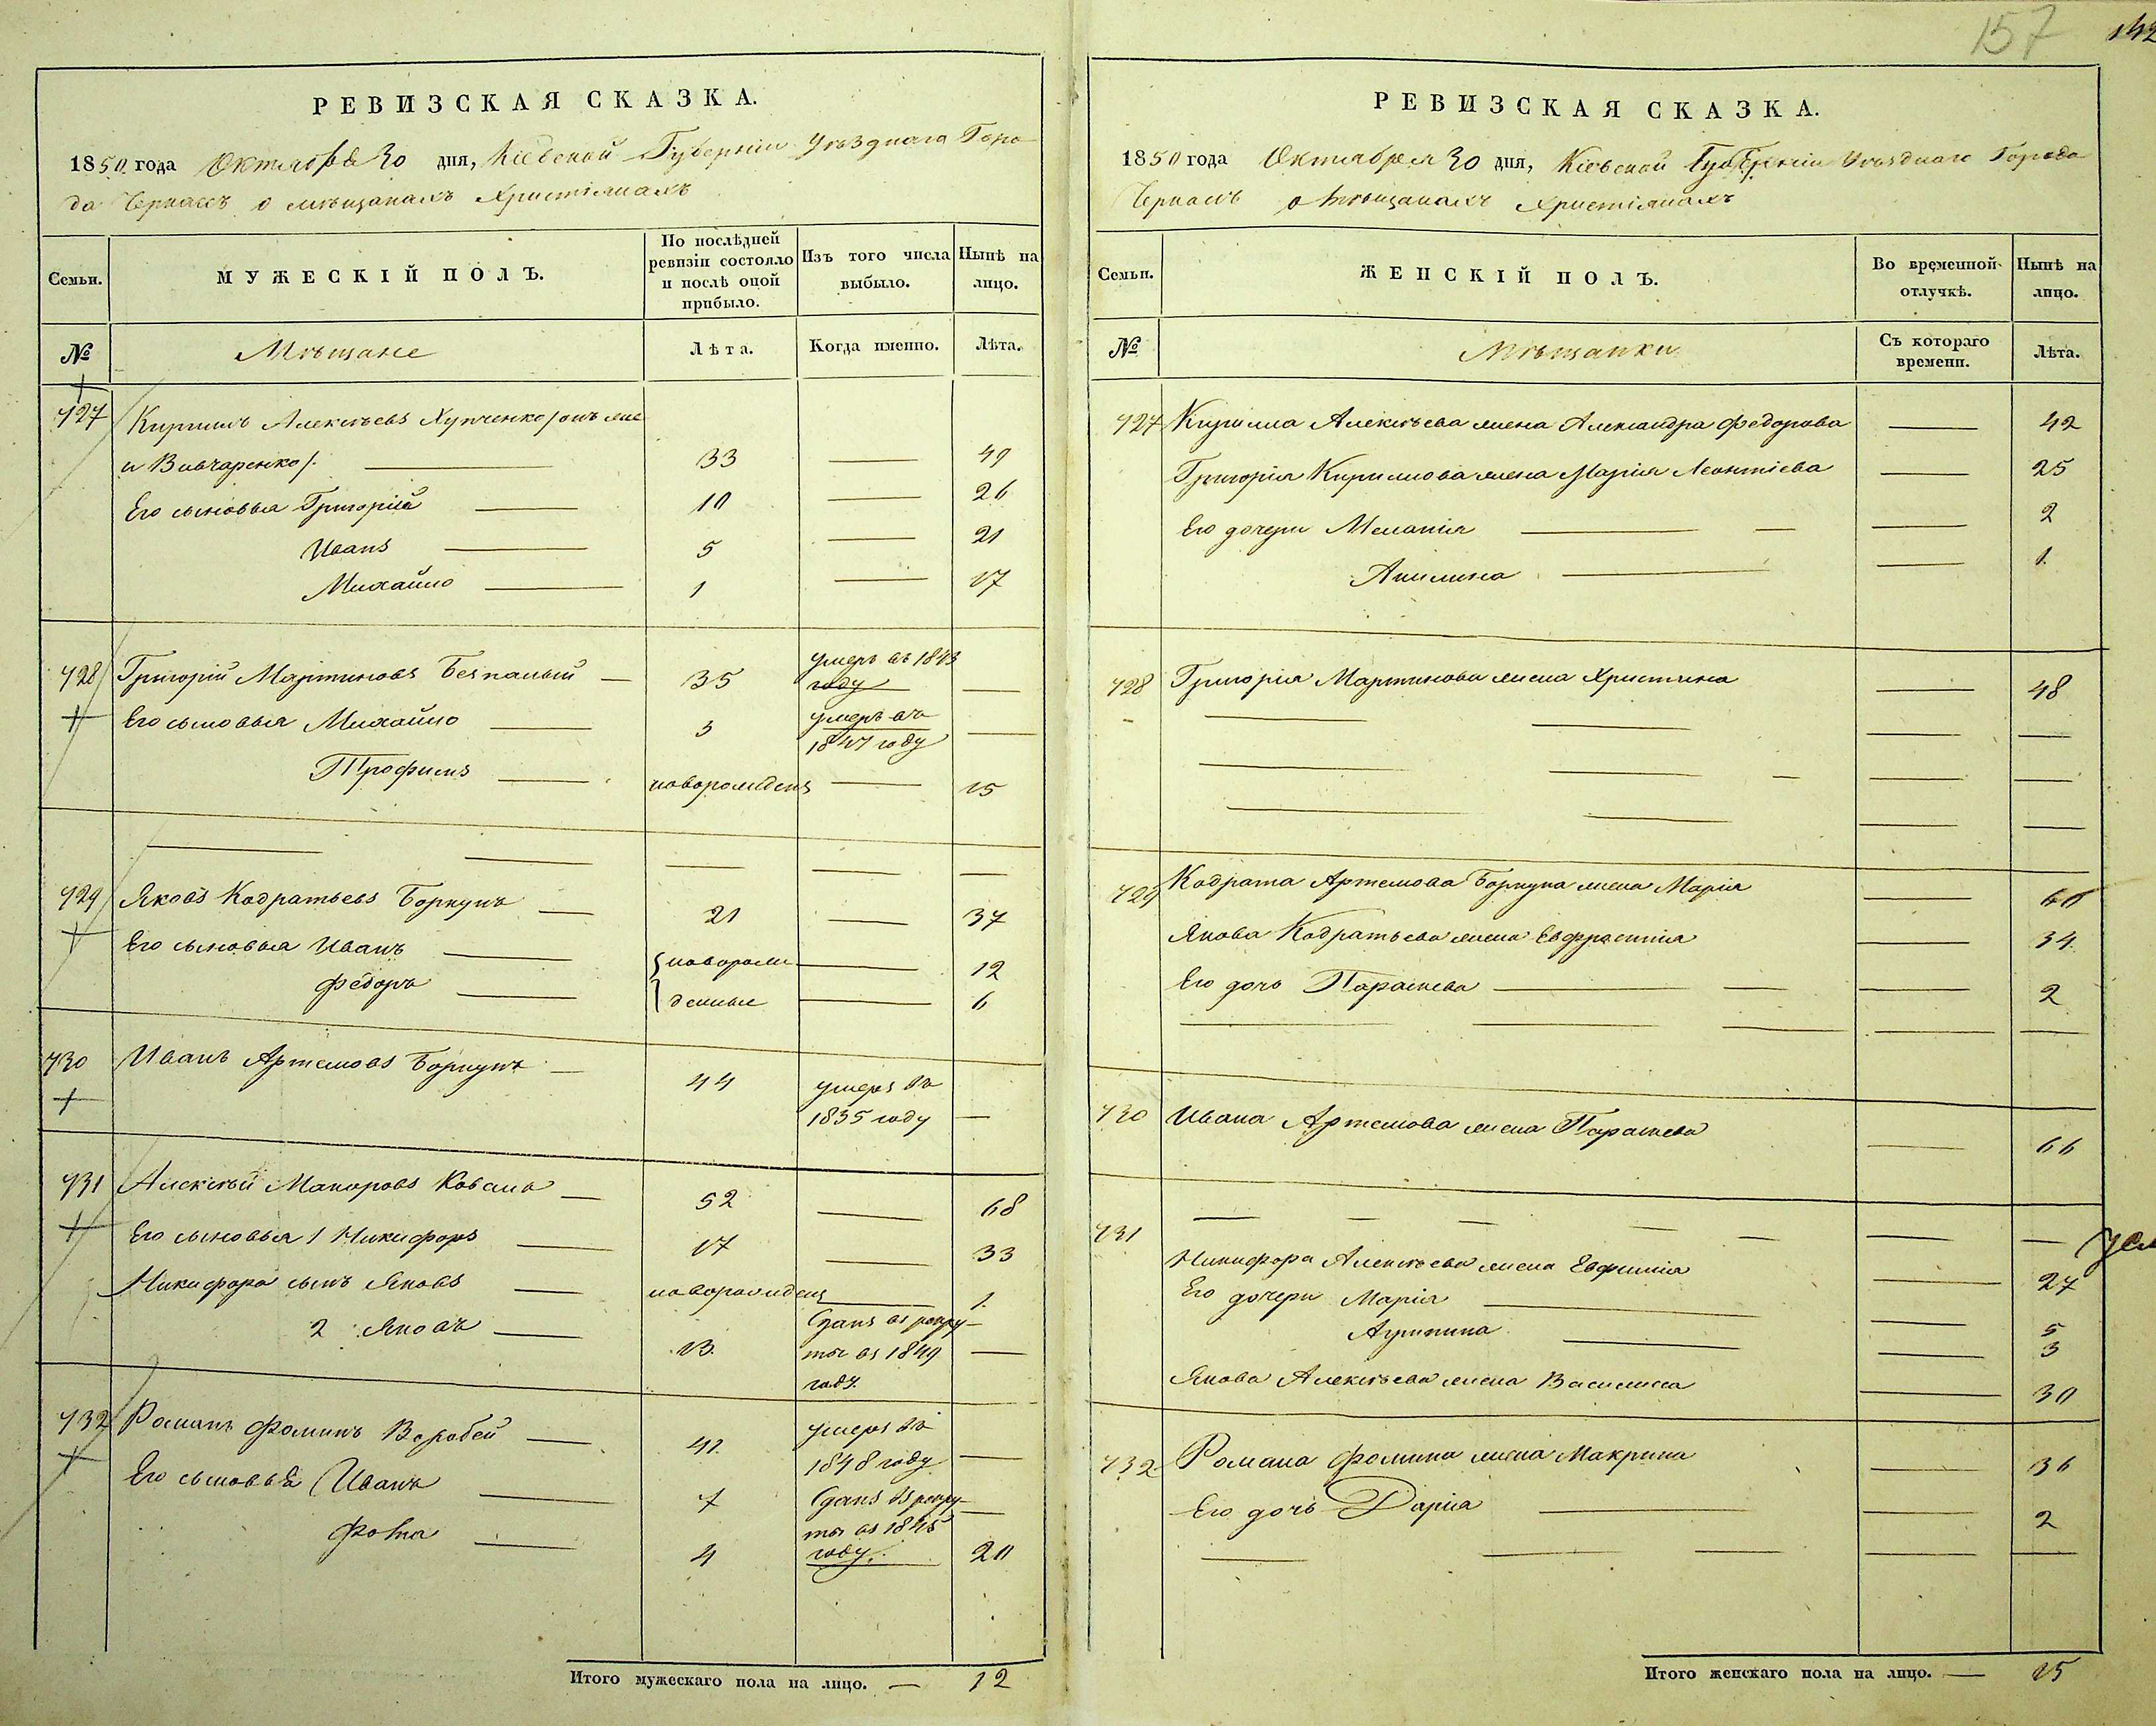 157
142
РЕВИЗСКАЯ СКАЗКА.
1850 года Октября 30 дня, Кіевской Губерніи Уѣзднаго Горо
да Черкасъ о мѣщанахъ Христіянахъ
Семьи.
МУЖЕСКІЙ ПОЛЪ.
По послѣдней ревизіи состояло и послѣ оной прибыло.
Изъ того числа выбыло.
Нынѣ на лицо.
№
Мѣщане
Лѣта.
Когда именно.
Лѣта.
727 Кирилъ Алексѣевъ Хупченко /онъ же
и Вивчаренко/. — 33 — 49
Его сыновья Григорій — 10 — 26
Иванъ — 5 — 21
Михайло — 1 — 17
728 Григорій Мартиновъ Безпалый — 35 умеръ въ 1843 году —
Его сыновья Михайло — 3 умеръ въ 1847 году —
Трофимъ — новорожденъ — 15
729 Яковъ Кодратьевъ Боркунъ — 21 — 37
Его сыновья Иванъ — новорож — 12
Федоръ — денные — 6
730 Иванъ Артемовъ Боркунъ — 44 умеръ въ
1835 году —
731 Алексѣй Макаровъ Коваль — 52 — 68
Его сыновья 1 Никифоръ — 17 — 33
Никифора сынъ Яковъ — новорожденъ — 1.
2 Яковъ — 13. Сданъ въ рекру
ты въ 1849 —
году.
732 Романъ Фоминъ Воробей — 41. умеръ въ
1848 году —
Его сыновья Иванъ — 7 Сданъ въ рекру
ты въ 1845 —
Фома — 4 году. 20
Итого мужескаго пола на лицо. — 12
РЕВИЗСКАЯ СКАЗКА.
1850 года Октября 30 дня, Кіевской Губерніи Уѣзднаго Города
Черкасъ о мѣщанахъ Христіянахъ
Семьи.
ЖЕНСКІЙ ПОЛЪ.
Во временной отлучкѣ.
Нынѣ на лицо.
№
Мѣщанки
Съ котораго времени.
Лѣта.
727 Кирила Алексѣева жена Александра Федорова — 42
Григорія Кирилова жена Марія Леонтіева — 25
Его дочери Меланія — 2
Акилина — 1.
728 Григорія Мартинова жена Христина — 48
729 Кодрата Артемова Боркуна жена Марія — 60
Якова Кодратьева жена Евфросинія — 34.
Его дочь Параскева — 2
730 Ивана Артемова жена Параскева — 66
731
Никифора Алексѣева жена Евфимія — 27
Его дочери Марія — 5
— 3
Якова Алексѣева жена Василиса — 30
732 Романа Фомина жена Макрина — 36
Его дочь Дарія — 2
Итого женскаго пола на лицо. — 15